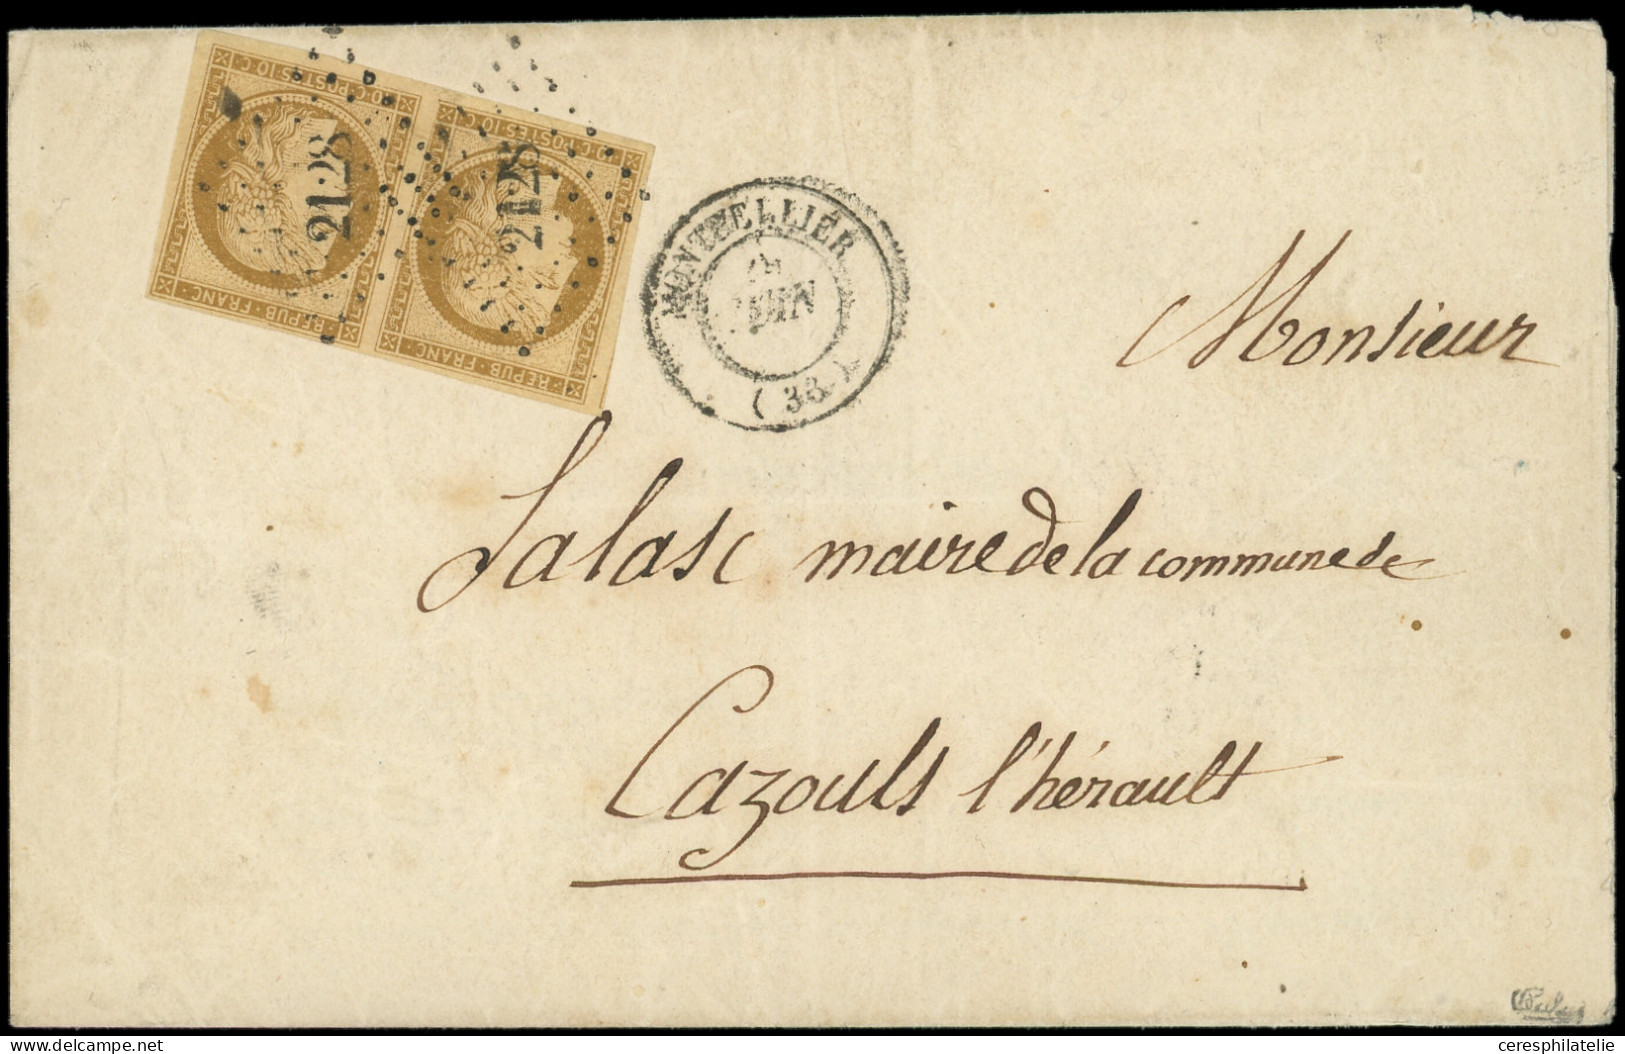 10·C·POSTES·10·C
10·C·POSTES·10·C
2128
2128
REPUB·FRANC·
REPUB·FRANC·
MONTPELLIER
JUIN
( 33 )
Monsieur
Salasc maire de la commune de
Cazouls l'hérault
ceresphilatelie